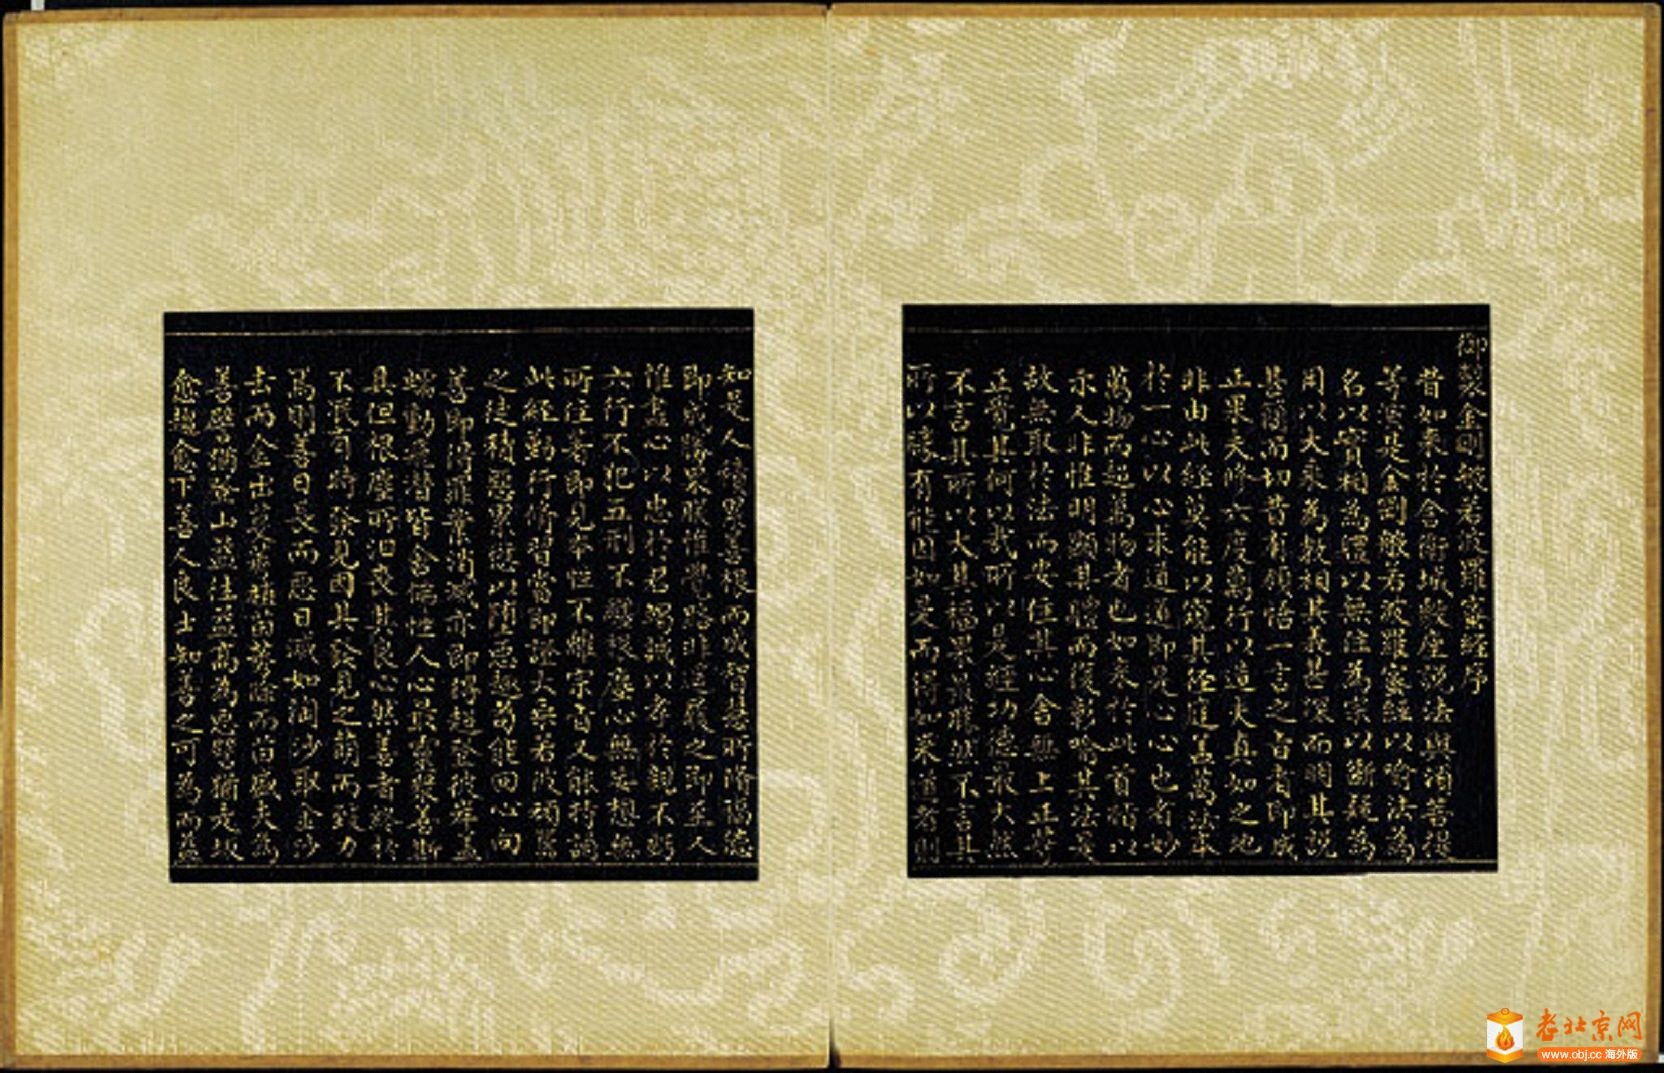 御製金剛般若波羅蜜經序
昔如來於舍衛城敷座說法與須菩提
等宣是金剛般若波羅蜜經以喻法為
名以實相為體以無住為宗以斷疑為
用以大乘為教相其義甚深而明其說
甚簡而切昔有領悟一言之旨者即成
正果夫修六度萬行以造夫真如之地
非由此經莫能以窺其徑庭蓋萬法本
於一心以心求道道即是心心也者妙
萬物而超萬物者也如來於此首稱以
示人非惟明顯其體而復彰喻其法是
故無取於法而安住其心舍無上正等
正覺其何以哉所以是經功德最大然
不言其所以大其福果最勝然不言其
所以勝有能因如是而得如來道者則
知是人積累善根而成智慧所脩福德
即成勝果厥惟覺路非遠履之即至人
惟盡心以忠於君竭誠以孝於親不虧
六行不犯五刑不離根塵心無妄想無
所住著即見本性不離宗旨又能持誦
此經勤行脩習當即證大乘若彼頑嚚
之徒積惡累愆以墮惡趣茍能回心向
善即得罪業消滅亦即得超登彼岸蓋
蠕動飛潛皆含佛性人心最靈聚善斯
具但恨塵所汩喪其良心然善者終於
不泯有時發見因其發見之萌而致力
焉則善日長而惡日滅如淘沙取金沙
去而金出芟荑植苗荑除而苗盛夫為
善譬猶登山益往益高為惡譬猶走坂
愈趨愈下善人良士知善之可為而益
老北京网
www.obj.cc 海外版